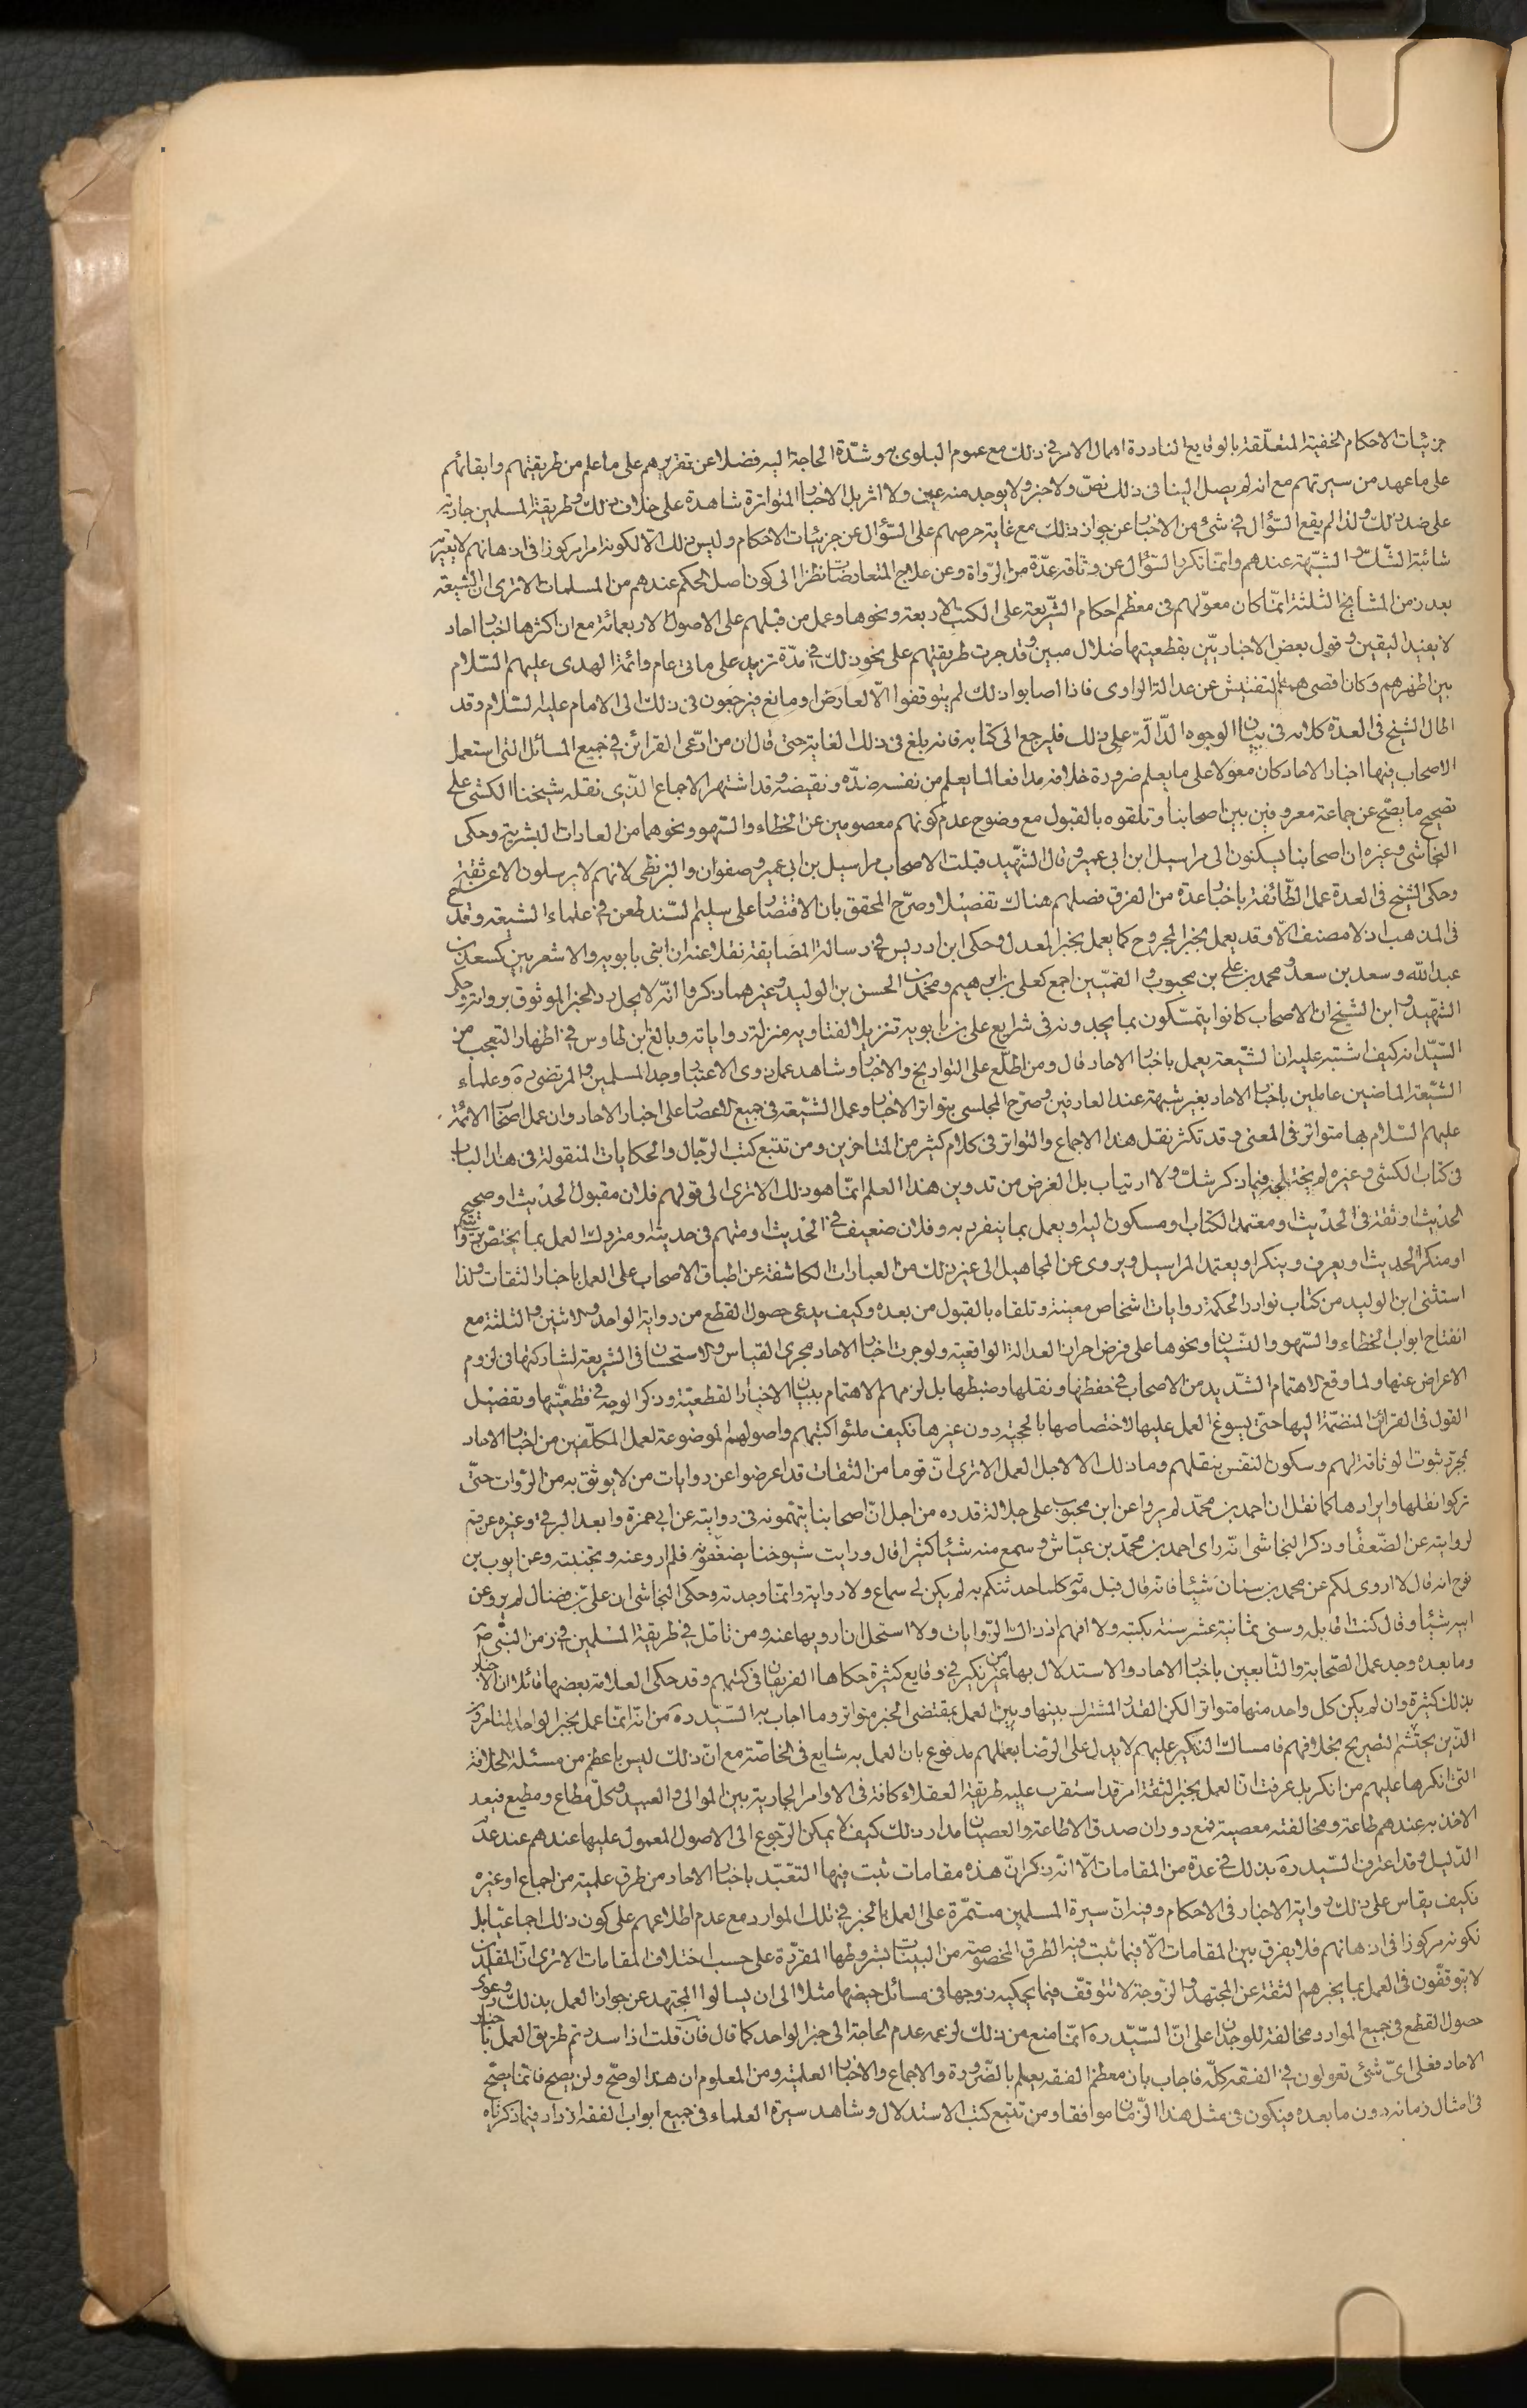 جزئيات الاحكام الخفية المتعلقة بالوقايع النادرة اهمال الامر في ذلك مع عموم البلوى به وشدّة الحاجة اليه فضلا عن تقريرهم على ما علم من طريقتهم وابقائهم
على ما عهد من سيرتهم مع انه لم يصل الينا في ذلك نصّ ولا خبر ولا يوجد منه عين ولا اثر بل الاخبار المتواترة شاهدة على خلاف ذلك وطريقة المسلمين جارية
على ضد ذلك ولذا لم يقع السّؤال في شئ من الاخبار عن جواز ذلك مع غاية حرصهم على السّؤال عن جزئيات الاحكام وليس ذلك الّا لكونه امرا مركوزا في اذهانهم لا يعتريه
شائبة الشّك والشبهة عندهم وانّما تكرر السّؤال عن وثاقة عدّة من الرّواة وعن علاج المتعارضات نظرا الى كون اصل الحكم عندهم من المسلمات الا ترى ان الشيعة
بعد زمن المشايخ الثلثة انّما كان معوّلهم في معظم احكام الشّريعة على الكتب الاربعة ونحوها وعمل من قبلهم على الاصول الاربعمائة مع ان اكثرها اخبار احاد
لا يفيد اليقين وقول بعض الاخباريّين بقطعيتها ضلال مبين وقد جرت طريقتهم على نحو ذلك في مدّة تزيد على ماتى عام وائمة الهدى عليهم السّلام
بين اظهرهم وكان اقصى هممهم التفتيش عن عدالة الراوى فاذا اصابوا ذلك لم يتوقفوا الّا لعارض او مانع فيرجعون في ذلك الى الامام عليه السّلام وقد
اطال الشيخ في العدة كلامه في بيان الوجوه الدّالّة على ذلك فليرجع الى كتابه فانه بلغ في ذلك الغاية حتى قال ان من ادّعى القرائن في جميع المسائل التى استعمل
الاصحاب فيها اخبار الاحاد كان معوّلا على ما يعلم ضرورة خلافه مدافعا لما يعلم من نفسه ضدّه ونقيضه وقد اشتهر الاجماع الذى نقله شيخنا الكشى على
تصحيح ما يصحّ عن جماعة معروفين بين اصحابنا وتلقوه بالقبول مع وضوح عدم كونهم معصومين عن الخطاء والسّهو ونحوهما من العادات البشرية وحكى
النجاشى وغيره ان اصحابنا يسكنون الى مراسيل ابن ابى عمير وقال الشهّيد قبلت الاصحاب مراسيل بن ابى عمير وصفوان والبزنطى لانهم لا يرسلون الا عن ثقة
وحكى الشيخ في العدة عمل الطّائفة باخبار عدة من الفرق فصلهم هناك تفصيلا وصرّح المحقق بان الاقتصار على سليم السّند طعن في علماء الشيعة وقدح
في المذهب اذ لا مصنف الّا وقد يعمل بخبر المجروح كما يعمل بخبر المعدل وحكى ابن ادريس في رسالة المضايقة نقلا عنه ان ابنى بابويه والاشعريين كسعد بن
عبد الله وسعد بن سعد ومحمد بن على بن محبوب والقميّين اجمع كعلى بن ابرهيم ومحمد بن الحسن بن الوليد وغيرهما ذكروا انّه لا يحل رد الخبر الموثوق برواته وحكى
الشهيد وابن الشيخ ان الاصحاب كانوا يتمسّكون بما يجدونه في شرايع على بن بابويه تنزيلا لفتاويه منزلة رواياته وبالغ ابن طاوس في اظهار التعجب من
السيّد انه كيف اشتبه عليه ان الشّيعة يعمل باخبار الاحاد قال ومن اطلّع على التواريخ والاخبار وشاهد عمل ذوى الاعتبار وجد المسلمين والمرتضى ره وعلماء
الشيّعة الماضين عاملين باخبار الاحاد بغير شبهة عند العارفين وصرّح المجلسى بتواتر الاخبار وعمل الشيّعة في جميع الاعصار على اخبار الاحاد وان عمل اصحاب الائمّة
عليهم السّلام بها متواتر في المعنى وقد تكثر نقل هذا الاجماع والتواتر في كلام كثير من المتاخرين ومن تتبع كتب الرّجال والحكايات المنقولة في هذا الباب
في كتاب الكشى وغيره لم يختلجه فيما ذكر شكّ ولا ارتياب بل الغرض من تدوين هذا العلم انّما هو ذلك الا ترى الى قولهم فلان مقبول الحديث او صحيح
الحديث او ثقة في الحديث او معتمد الكتاب او مسكون اليه او يعمل بما ينفرد به وفلان ضعيف في الحديث او متهم في حديثه او متروك العمل بما يختصّ بروايته
او منكر الحديث او يعرف وينكر او يعتمد المراسيل ويروى عن المجاهيل الى غير ذلك من العبارات الكاشفة عن اطباق الاصحاب على العمل باخبار الثقات ولذا
استثنى ابن الوليد من كتاب نوادر الحكمة روايات اشخاص معينة وتلقاه بالقبول من بعده وكيف يدعى حصول القطع من رواية الواحد والاثنين والثلثة مع
انفتاح ابواب الخطاء والسّهو والنسيان ونحوها على فرض احراز العدالة الواقعية ولو جرت اخبار الاحاد مجرى القياس والاستحسان في الشريعة لشاركتها في لزوم
الاعراض عنها ولما وقع الاهتمام الشّديد من الاصحاب في حفظها ونقلها وضبطها بل لزمهم الاهتمام ببيان الاخبار القطعيّة وذكر الوجه في قطعيّتها وتفصيل
القول في القرائن المنضمّة اليها حتى يسوغ العمل عليها لاختصاصها بالحجية دون غيرها فكيف ملئوا كتبهم واصولهم الموضوعة لعمل المكلّفين من اخبار الاحاد
بمجرد ثبوت الوثاقة لهم وسكون النفس بنقلهم وما ذلك الا لاجل العمل الا ترى انّ قوما من الثقات قد اعرضوا عن روايات من لا يوثق به من الرّوات حتّى
تركوا نقلها وايرادها كما نقل ان احمد بن محمّد لم يرو عن ابن محبوب على جلالة قدره من اجل انّ اصحابنا يتّهمونه في روايته عن ابى حمزة وابعد البرقى وغيره عن قم
لروايته عن الضّعفاء وذكر النجاشى انّه راى احمد بن محمّد بن عيّاش وسمع منه شيئا كثيرا قال ورايت شيوخنا يضعّفونه فلم ارو عنه وتجنّبته وعن ايوب بن
نوح انه قال لا اروى لكم عن محمد بن سنان شيئا فانّه قال قبل موته كلما حدثتكم به لم يكن لى سماع ولا رواية وانّما وجدته وحكى النجاشى ان علىّ بن فضال لم يرو عن
ابيه شيئا وقال كنت اقابله وسنى ثمانية عشر سنة بكتبه ولا افهم اذ ذاك الرّوايات ولا استحل ان ارويها عنه ومن تامّل في طريقة المسلمين في زمن النّبى ص
وما بعده وجد عمل الصّحابة والتّابعين باخبار الاحاد والاستدلال بها من غير نكير في وقايع كثيرة حكاها الفريقان في كتبهم وقد حكى العلامة بعضها قائلا ان الاخبار
بذلك كثيرة وان لم يكن كل واحد منها متواترا لكن القدر المشترك بينها وبين العمل بمقتضى الخبر متواتر وما اجاب به السّيّد ره من انّه انّما عمل بخبر الواحد المتامرون
الّذين يحتشم التصريح بخلافهم فامساك النّكير عليهم لا يدل على الرّضا بعملهم مدفوع بان العمل به شايع في الخاصّة مع انّ ذلك ليس باعظم من مسئلة الخلافة
التى انكرها عليهم من انكر بل عرفت انّ العمل بخبر الثقة امر قد استقرت عليه طريقة العقلاء كافة في الاوامر الجارية بين الموالى والعبيد وكلّ مطاع ومطيع فيعد
الاخذ به عندهم طاعة ومخالفته معصية فمع دوران صدق الاطاعة والعصيان مدار ذلك كيف لا يمكن الرّجوع الى الاصول المعمول عليها عندهم عند عدم
الدّليل وقد اعترف السّيد ره بذلك في عدة من المقامات الّا انّه ذكر انّ هذه مقامات ثبت فيها التعبّد باخبار الاحاد من طرق علمية من اجماع او غيره
فكيف يقاس على ذلك رواية الاخبار في الاحكام وفيه انّ سيرة المسلمين مستمّرة على العمل بالخبر في تلك الموارد مع عدم اطلاعهم على كون ذلك اجماعيّا بل
لكونه مركوزا في اذهانهم فلا يفرق بين المقامات الّا فيما ثبت فيه الطرق المخصوصة من البيّنات بشروطها المقرّرة على حسب اختلاف المقامات الا ترى انّ المقلدين
لا يتوقفّون في العمل بما يخبرهم الثقة عن المجتهد والزوجة لا تتوقّف فيما يحكيه زوجها في مسائل حيضها مثلا الى ان يسالوا المجتهد عن جواز العمل بذلك ودعوى
حصول القطع في جميع الموارد مخالفة للوجدان على انّ السّيّد ره انّما منع من ذلك لزعمه عدم الحاجة الى خبر الواحد كما قال فان قلت اذا سددتم طريق العمل باخبار
الاحاد فعلى اىّ شئ تعولون في الفقه كلّه فاجاب بان معظم الفقه يعلم بالضّرورة والاجماع والاخبار العلمية ومن المعلوم ان هذا لو صحّ ولن يصح فانّما يصحّ
في امثال زمانه دون ما بعده فيكون في مثل هذا الزّمان موافقا ومن تتبع كتب الاستدلال وشاهد سيرة العلماء في جميع ابواب الفقه ازداد فيما ذكرناه